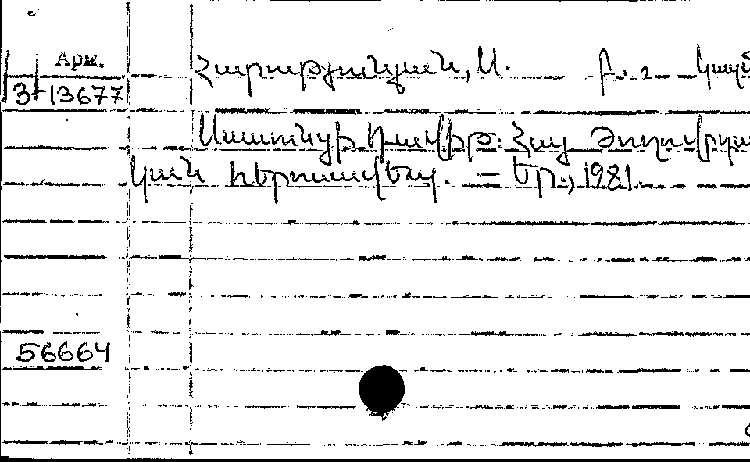 Արմ.
3+13677
Հարությունյան, Ա. բ. 2 կազմ
Սասունցի Դավիթ: Հայ ժողովրդա
կան հերոսավեպ. = Եր., 1981.
56664